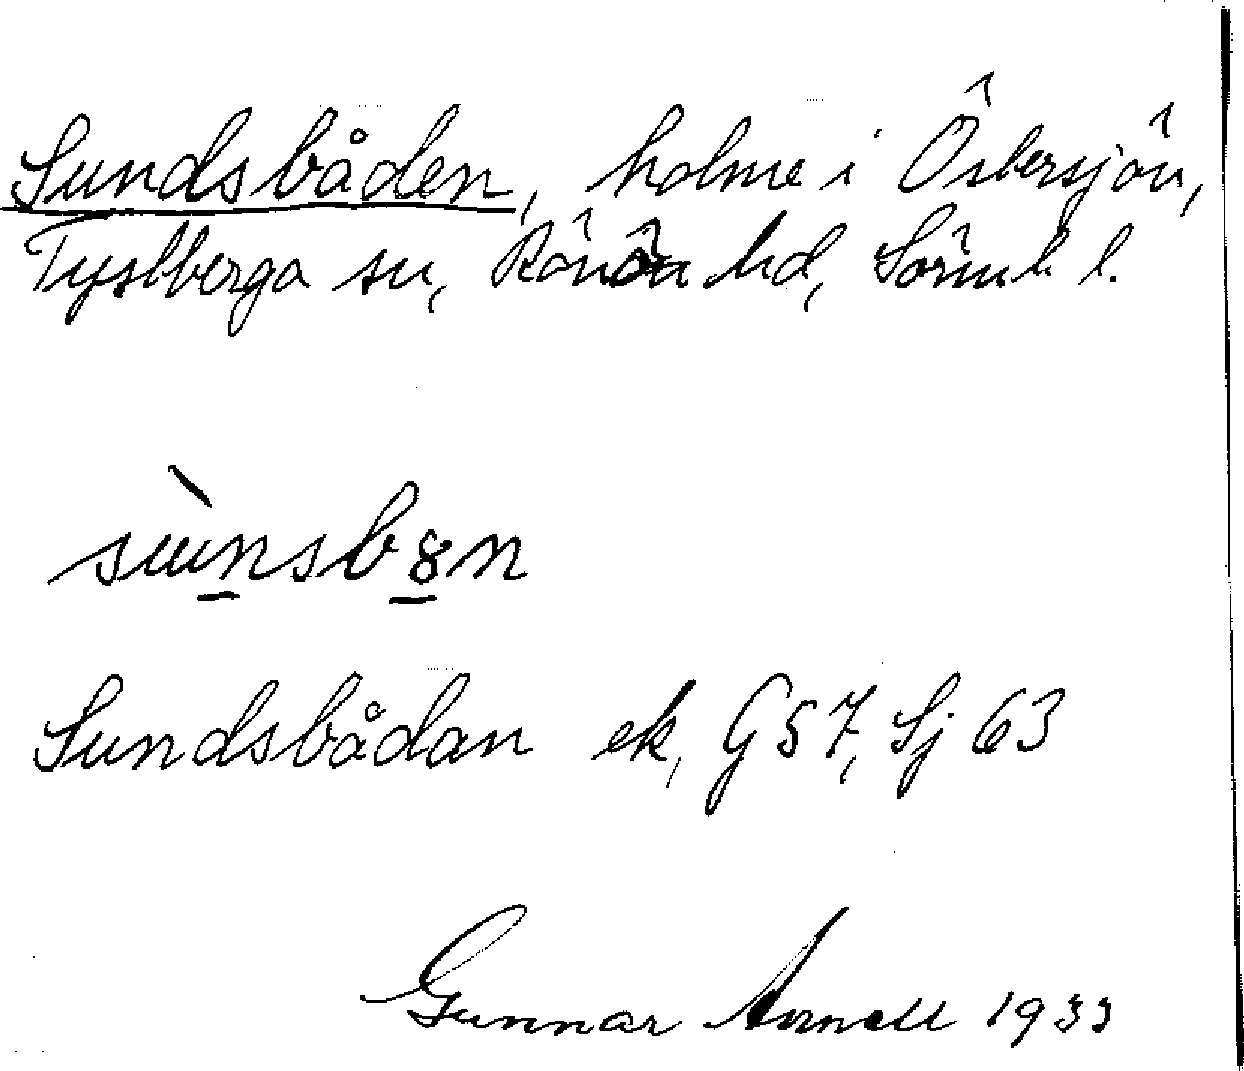 Sundsbåden, holme i Östersjön,
Tystberga sn, Rönö hd, Sörml l.
sùnsb8n
Sundsbådan ek, G57, Sj 63
Gunnar Arnell 1933